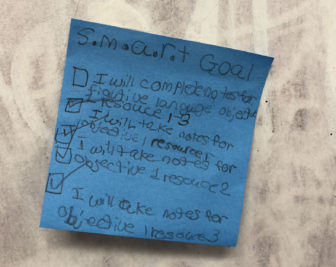 S.m.a.r.t Goal
I will complete notes for
figurative language objective
1 resource 1-3
I will take notes for
objective 1 resource 1
I will take notes for
objective 1 resource 2
I will take notes for
objective 1 resource 3